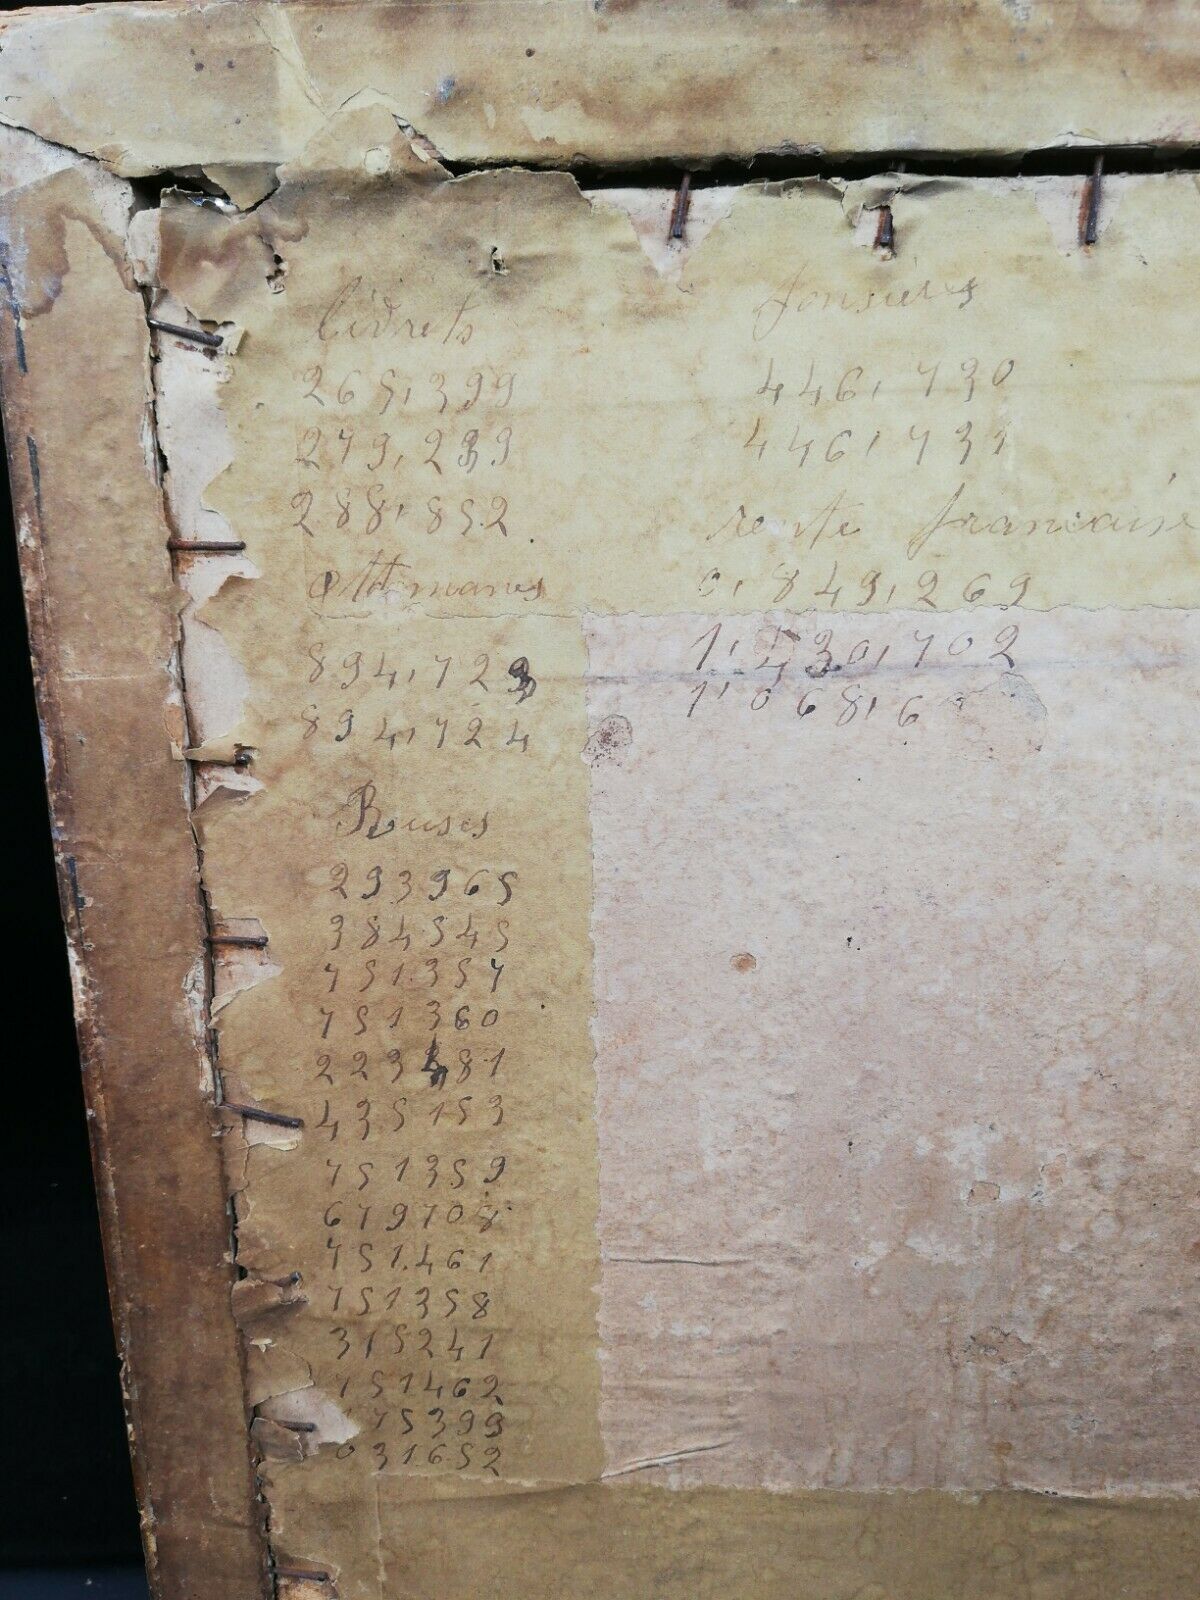 livrets
265,399
279,289
288,852
ottomanes
894,723
894,724
Ruses
293965
384545
751.357
751360
223481
435153
751359
679708
751.461
751358
315241
751462
75399
031652
fonsières
446,730
446,731
rente francaise
0,849,269
1,430,702
1,068,6